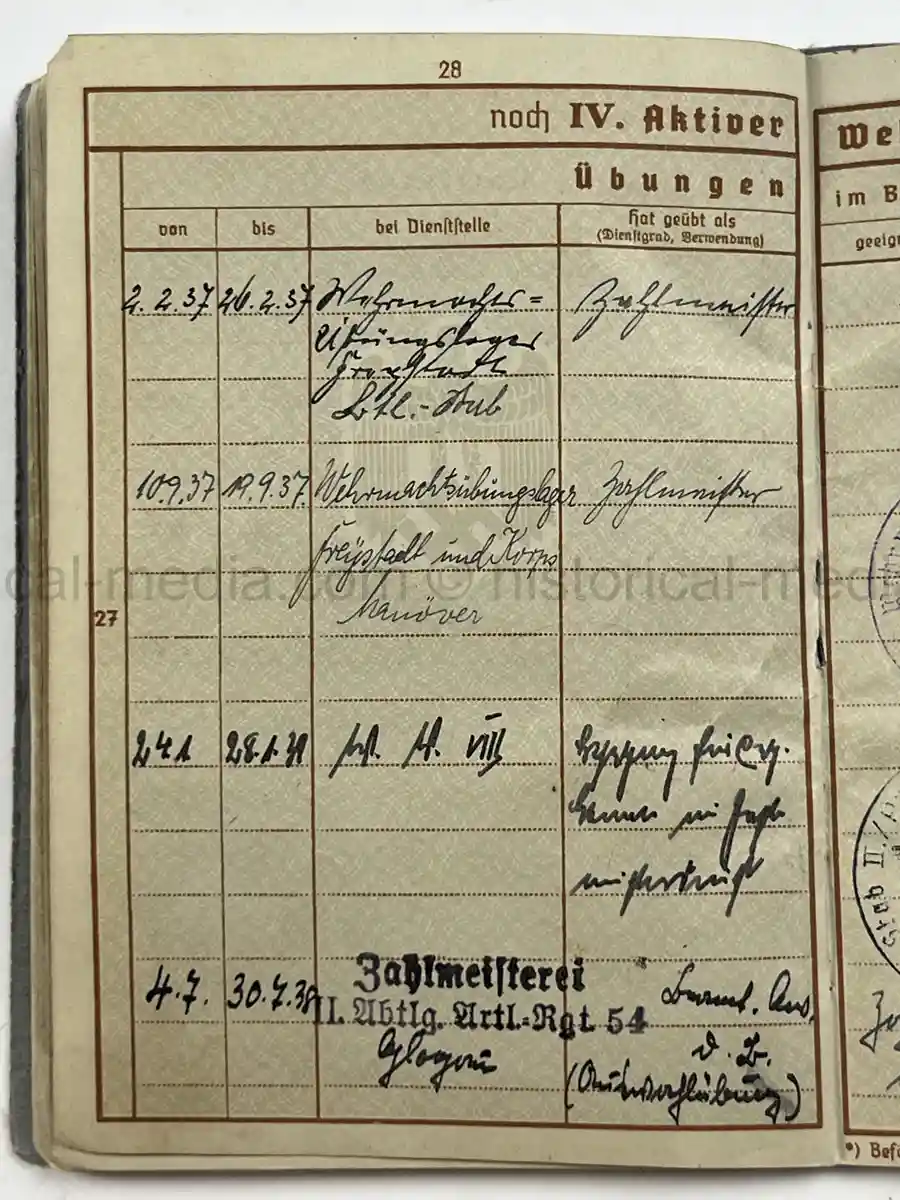 28
noch IV. Aktiver
We
Übungen
im B
von bis bei Dienststelle Hat geübt als
(Dienstgrad, Verwendung)
geeig
2.2.37 26.2.37 Wehrmachts= Zahlmeister
Übungslager
Freystadt
Btl.-Stab
10.9.37 19.9.37. Wehrmachtsübungslager Zahlmeister
Freystadt und Korps
cal-media.com © historical-med
Manöver
27
24.1 28.1.38 VIII
4.7. 30.7.38 Zahlmeisterei
II. Abtlg. Artl.-Rgt. 54
Glogau
d. B.
(Auswahlübung)
Stab II./
*) Bef